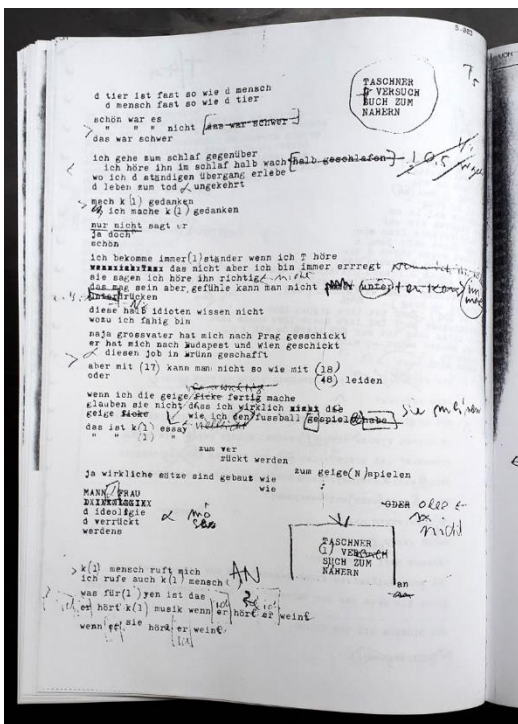 S.003
TASCHNER
VERSUCH
BUCH ZUM
NÄHERN
d tier ist fast so wie d mensch
d mensch fast so wie d tier
schön war es
" " " nicht das war schwer
das war schwer
ich gehe zum schlaf gegenüber
ich höre ihn im schlaf halb wach halb geschlafen
wo ich d ständigen übergang erlebe
d leben zum tod & ungekehrt
mach k(1) gedanken
ich mache k(1) gedanken
nur nicht sagt er
ja doch
schön
ich bekomme immer(1)ständer wenn ich T höre
das nicht aber ich bin immer errregt
sie sagen ich höre ihn richtig
das mag sein aber gefühle kann man nicht unter
unterdrücken
diese halb idioten wissen nicht
wozu ich fähig bin
naja grossvater hat mich nach Prag gesschickt
er hat mich nach Budapest und Wien geschickt
diesen job in Brünn geschafft
aber mit (17) kann man nicht so wie mit (18)
oder (48) leiden
wenn ich die geige ficke fertig mache
glauben sie nicht dass ich wirklich die
geige ficke wie ich den fussball gespielt habe
sie meinen
das ist k(1) essay
" " (1) "
zum ver
rückt werden
ja wirkliche sätze sind gebaut wie zum geige(N)spielen
wie
MANN/FRAU
d ideollgie
d verrückt
werdens
ODER oder
nicht
TASCHNER
(1) VERSUCH
BUCH ZUM
NÄHERN
an
k(1) mensch ruft mich AN
ich rufe auch k(1) mensch
was für(1) yen ist das
er hört k(1) musik wenn er hört er weint
wenn er sie hört er weint